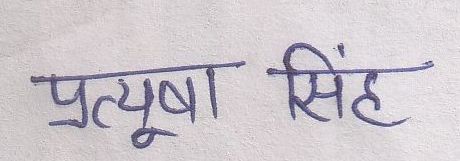 प्रत्यूषा सिंह